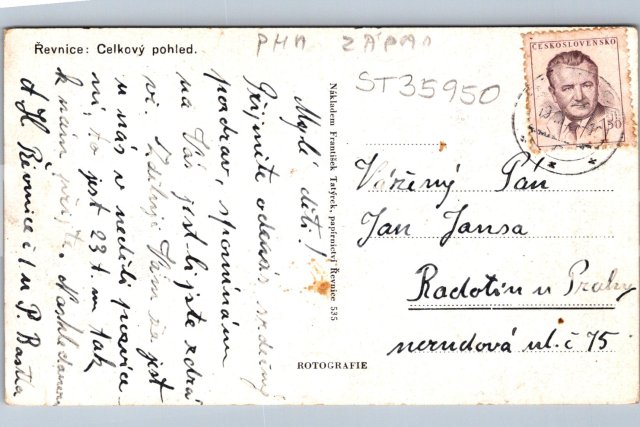 Řevnice: Celkový pohled.
PHA ZÁPAD
ST35950
ČESKOSLOVENSKO
1.50
Milé děti!
Přijměte odemás srdečný
pozdrav, spomínám
na Vás jestli jste zdrá
vi. Vám že jest
u nás v neděli posvíce
ní, to jest 23 t. m. tak
k nám přijďte. Nashledanou
Řevnice č 1 u P. Bartla
Nákladem František Tatýrek, papírnictví Řevnice 535
ROTOGRAFIE
Vážený Pán
Jan Jansa
Radotín u Prahy
nerudová ul. č 75